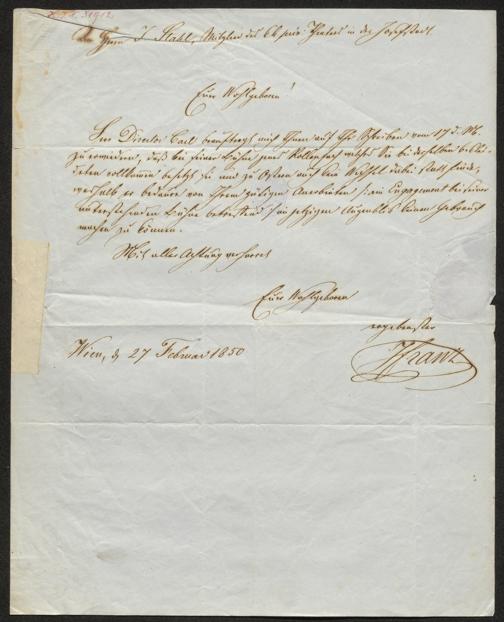 An Herrn J. Stahl, Mitglied des kk. priv: Theaters in der Josefstadt.
Euer Wohlgeboren!
Herr Director Carl beauftragt mich Ihnen auf Ihr Schreiben vom 17 d. M.
zu erwiedern, daß bei seiner Bühne jenes Rollenfach welches Sie bei derselben
vollkommen besetzt sei und zu Ostern auch kein Wechsel dabei statt finde,
weshalb er bedaure von Ihrem gütigen Anerbiethen Engagement bei seiner
unterstehenden Bühne betreffend im jetzigen Augenblick keinen Gebrauch
machen zu können.
Mit aller Achtung verharret
Euer Wohlgeboren
ergebenster
JFranz
Wien, d 27 Februar 1850